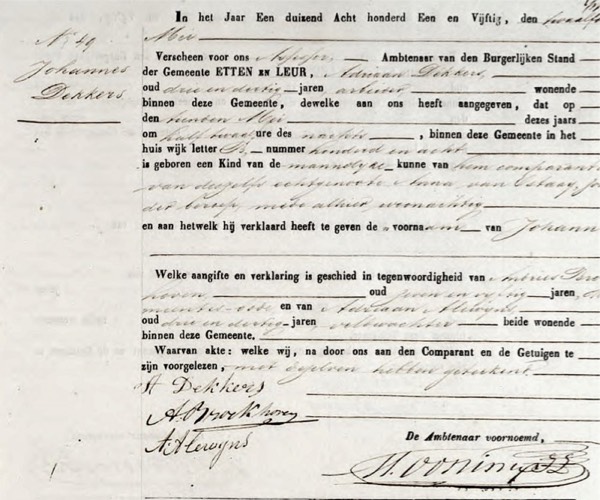 In het Jaar Een duizend Acht honderd Een en Vijftig, den twaalfd
Mei
No 49
Johannes
Dekkers
Verscheen voor ons Ambtenaar van den Burgerlijken Stand
der Gemeente ETTEN EN LEUR, Adriaan Dekkers,
oud drie en dertig jaren arbeider, wonende
binnen deze Gemeente, dewelke aan ons heeft aangegeven, dat op
den Mei dezes jaars
om half twee ure des , binnen deze Gemeente in het
huis wijk letter B, nummer honderd en acht
is geboren een Kind van de mannelyke kunne van hem comparant
van deszelfs echtgenoote Anna van
der beroep, mede alhier woonachtig
en aan hetwelk hij verklaard heeft te geven de voornaam van Johann
Welke aangifte en verklaring is geschied in tegenwoordigheid van Andries Bro
hoven oud jaren,
bode en van Adriaan
oud drie en dertig jaren veldwachter beide wonende
binnen deze Gemeente.
Waarvan akte: welke wij, na door ons aan den Comparant en de Getuigen te
zijn voorgelezen, met dezelven hebben geteekend.
A Dekkers
A. Broekhoven
De Ambtenaar voornoemd,